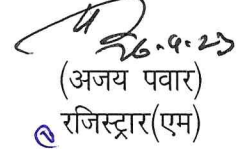 26.9.23
(अजय पवार)
रजिस्ट्रार(एम)